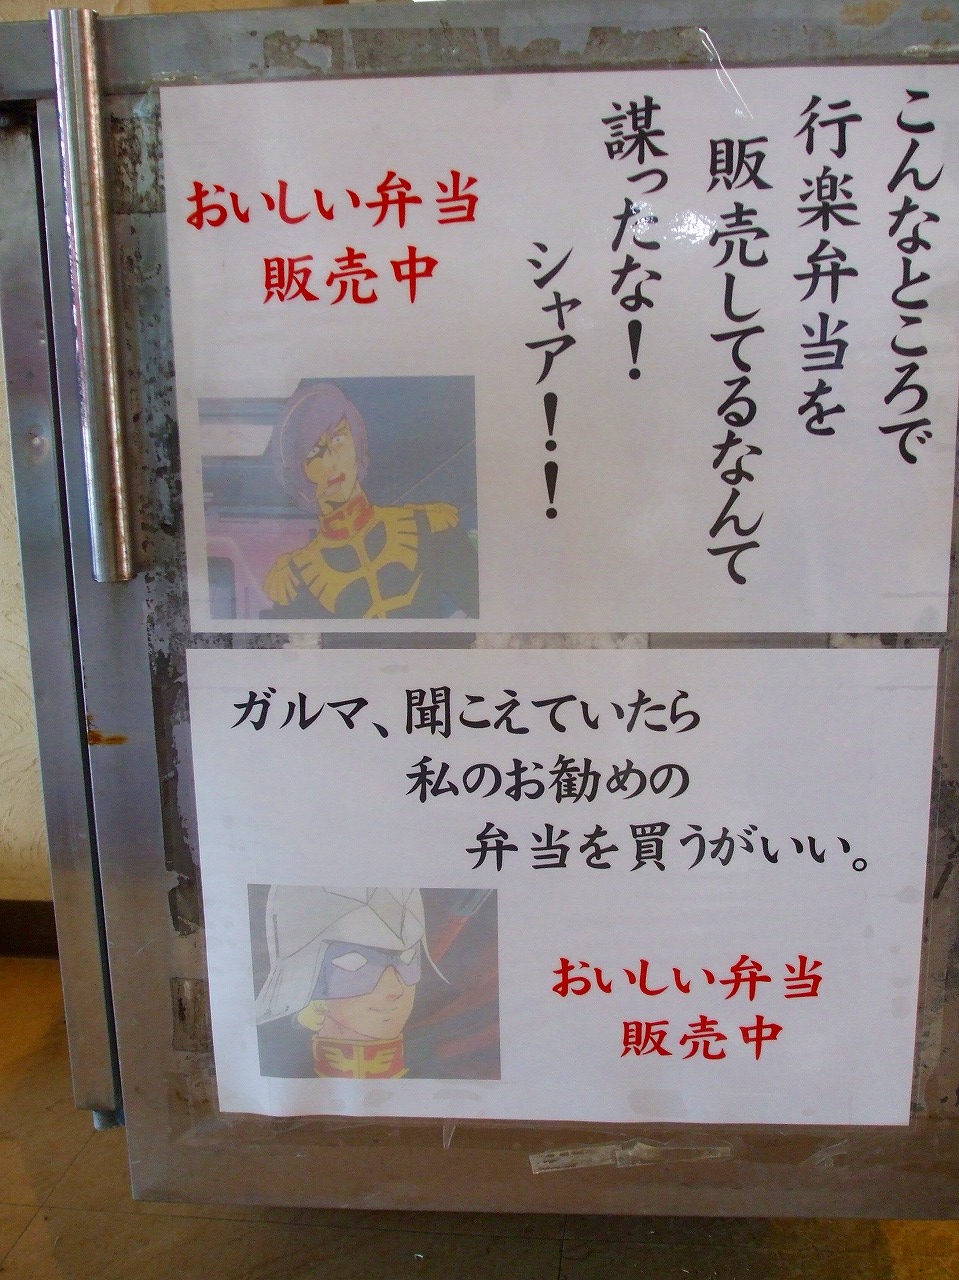 こんなところで
行楽弁当を
販売してるなんて
謀ったな！
シャア！！
おいしい弁当
販売中
ガルマ、聞こえていたら
私のお勧めの
弁当を買うがいい。
おいしい弁当
販売中